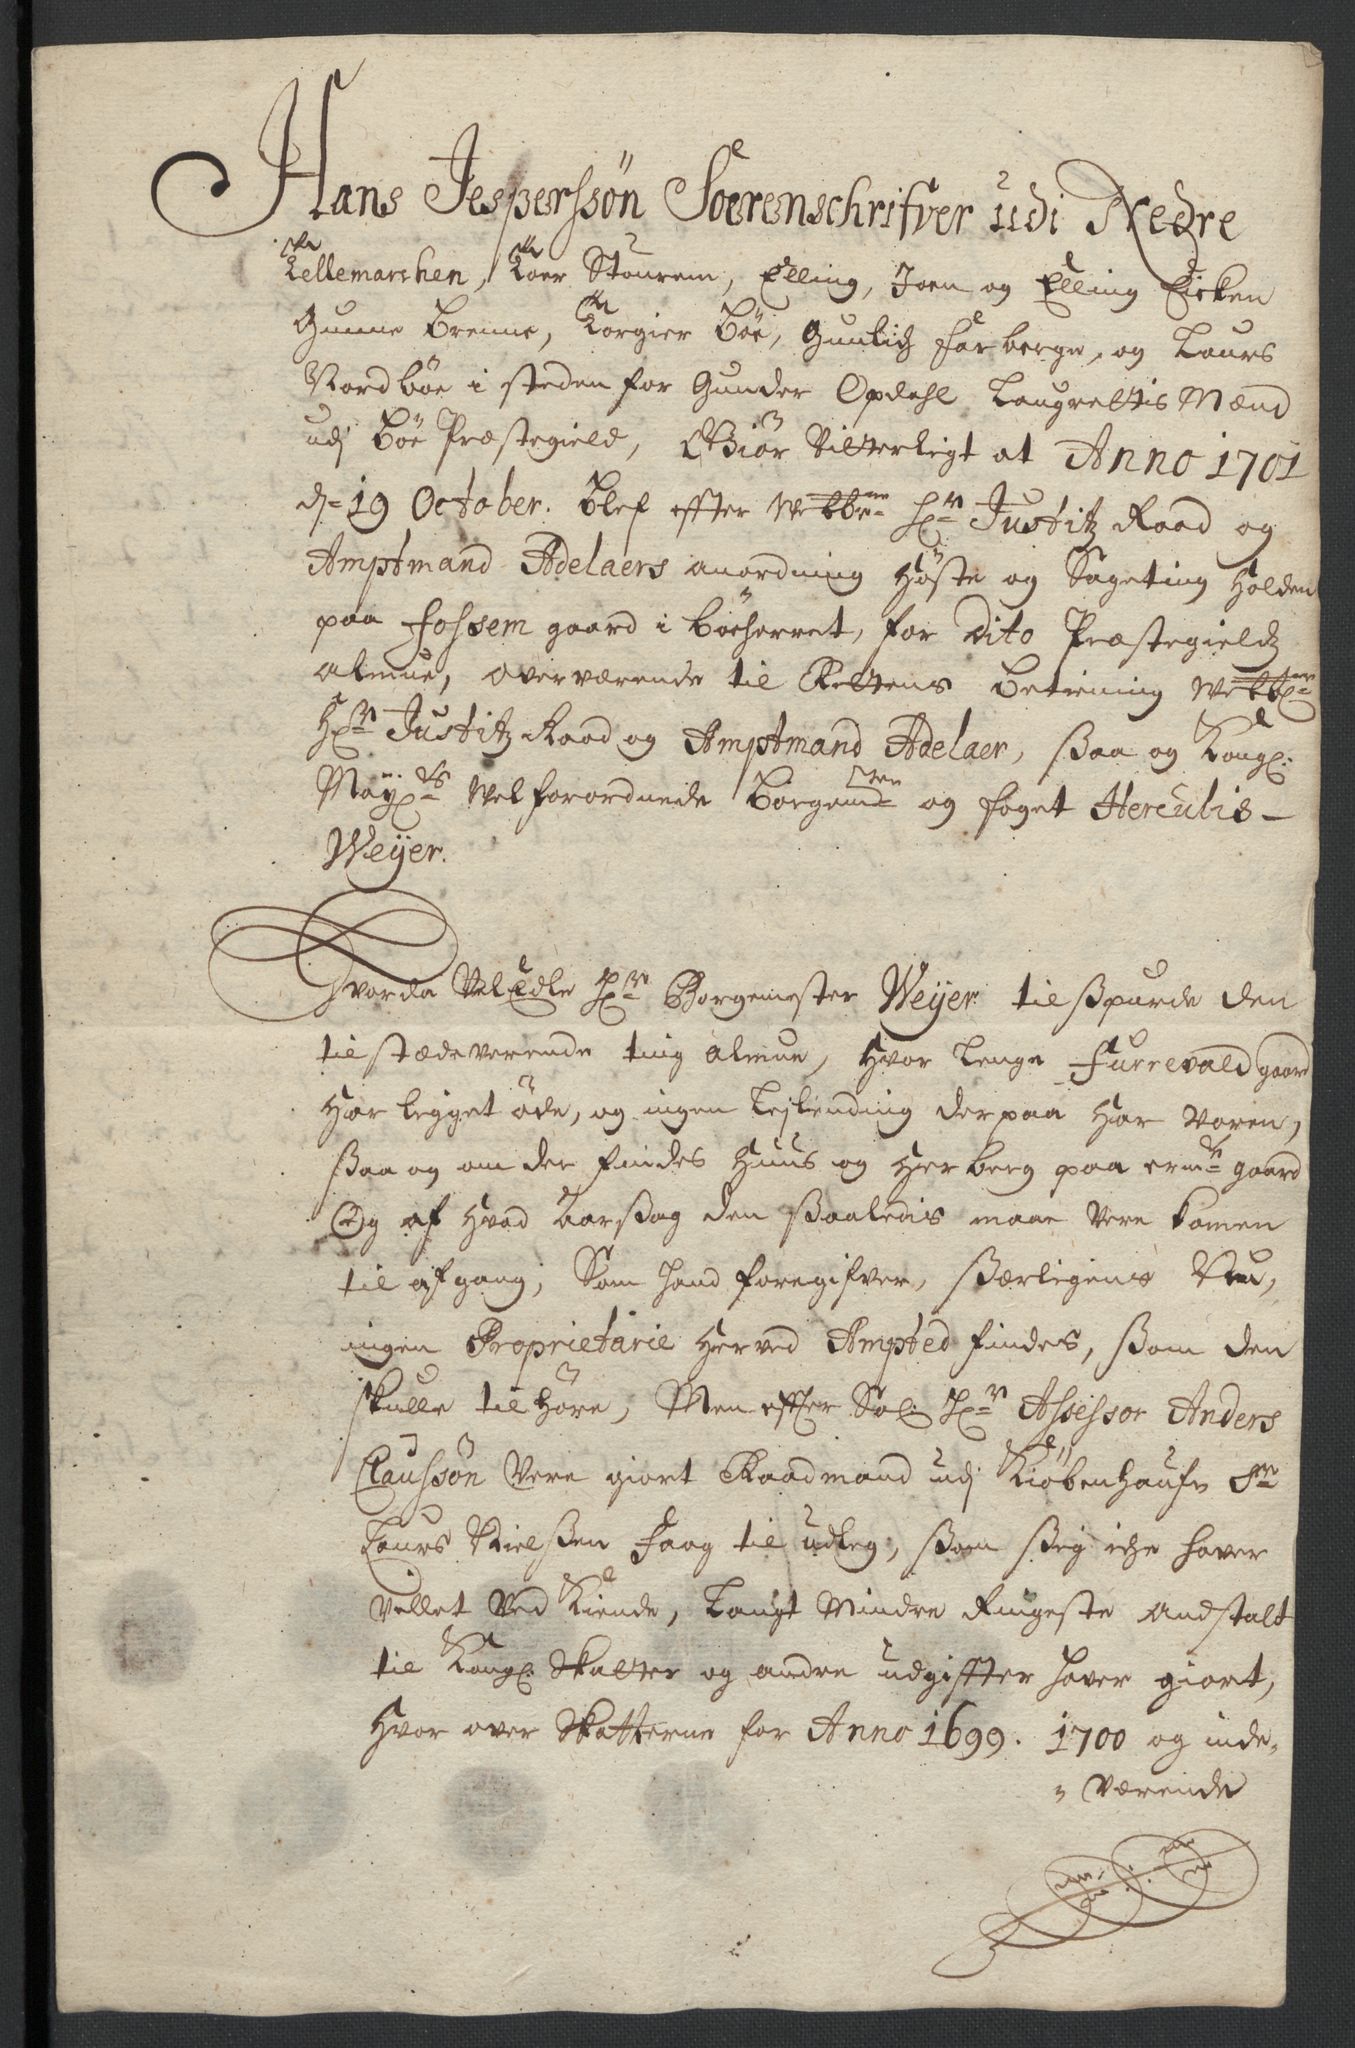 Hans Jesperssøn Soerenschrifver udi Nedre
Tellemarchen, Roer Stourem, Elling, Joen og Elling Eicken
Gunne Brenne, Torgier Böe, Gunlich Farberge, og Laurs
Nordböe i steden for Gunder Opdahl Laugrettis Mænd
udj Böe Præstegield, Giör Vitterligt at Anno 1701
d= 19 October. Blef effter Welbbrne Hr Justitz Raad og
Amptmand Adelaers anordning Höste og Sageting Holden
paa Fossem gaard i Böeherret, for dito Præstegieldtz
almue, overværende til Rettens betiening Welbbrne
Hr Justitz Raad og Amptmand Adelaer, ßaa og Kongl:
Mayts Velforordnede Borgemster og foget Herculis
Weyer.
Hvorda VelEdle Hr Borgemester Weyer tilßpurde den
tilstædeverende ting almue, Hvor Lenge Furrevald gaard
Har legget öde, og ingen Lejlending derpaa Har Voren,
ßaa og om der findes Huus og Herberg paa ermte gaard
Og af Hvad Aarßag den ßaaledis maae Vere komen
til afgang, Som Hand foregifver, ßærligens Nu,
ingen Proprietarie Herved Ampted findes, ßom den
skulle tilhöre, Men effter Sal: Hr Assessor Anders
Claussøn Vere giort Raadmand udj Kiöbenhaufn Sr
Laurs Nielßen Faag til udleg, ßom ßeig iche haver
Villet Ved Kiende, Langt Mindre Ringeste Andstalt
til Kongl: Skatter og andre udgiffter haver giort,
Hvor over Skatterne for Anno 1699. 1700 og inde-
værende